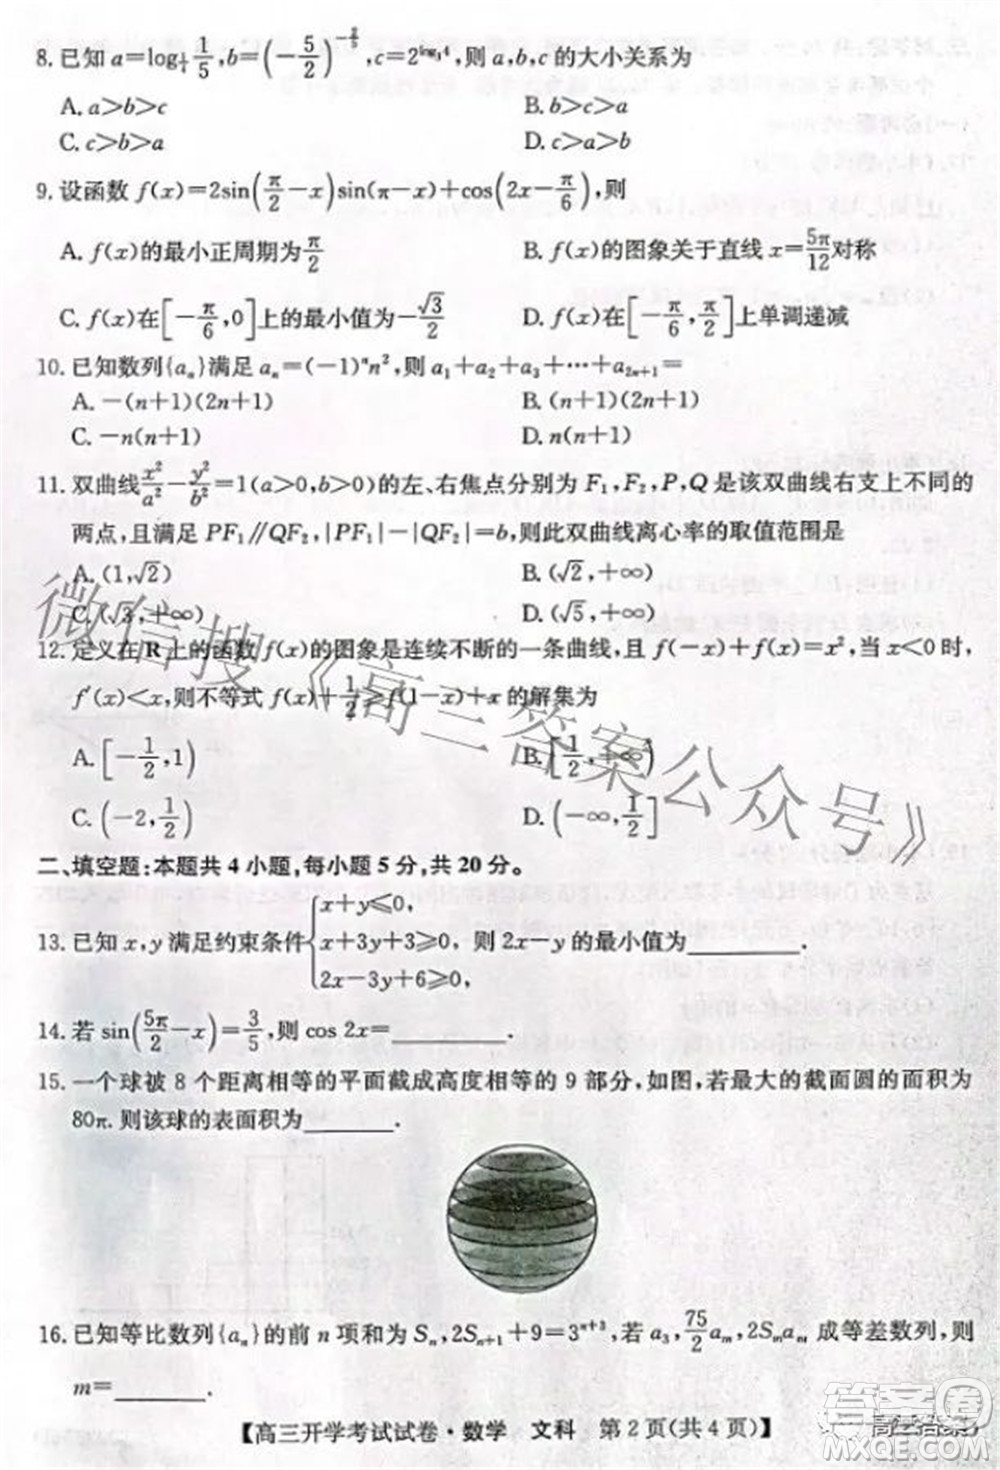 8. 已知 a=log_{1/4} 1/5, b=(-5/2)^{-2/3}, c=2^{log_3 4}, 则 a, b, c 的大小关系为
A. a>b>c B. b>c>a
C. c>b>a D. c>a>b
9. 设函数 f(x)=2sin(π/2-x)sin(π-x)+cos(2x-π/6), 则
A. f(x)的最小正周期为π/2 B. f(x)的图象关于直线 x=5π/12对称
C. f(x)在[-π/6, 0]上的最小值为-√3/2 D. f(x)在[-π/6, π/2]上单调递减
10. 已知数列{aₙ}满足 aₙ=(-1)ⁿn², 则 a₁+a₂+a₃+…+a₂ₙ₊₁=
A. -(n+1)(2n+1) B. (n+1)(2n+1)
C. -n(n+1) D. n(n+1)
11. 双曲线x²/a²-y²/b²=1(a>0,b>0)的左、右焦点分别为 F₁, F₂, P, Q 是该双曲线右支上不同的
两点, 且满足 PF₁∥QF₂, |PF₁|-|QF₂|=b, 则此双曲线离心率的取值范围是
A. (1,√2) B. (√2,+∞)
C. (√3,+∞) D. (√5,+∞)
12. 定义在 R 上的函数 f(x)的图象是连续不断的一条曲线, 且 f(-x)+f(x)=x², 当 x<0时,
f′(x)<x, 则不等式 f(x)+1/2≥f(1-x)+x 的解集为
A. [-1/2, 1) B. [1/2, +∞)
C. (-2, 1/2) D. (-∞, 1/2]
二、填空题:本题共 4 小题, 每小题 5 分, 共 20 分。
13. 已知 x, y 满足约束条件{x+y≤0, x+3y+3≥0, 2x-3y+6≥0, 则 2x-y 的最小值为________.
14. 若 sin(5π/2-x)=3/5, 则 cos 2x=________.
15. 一个球被 8 个距离相等的平面截成高度相等的 9 部分, 如图, 若最大的截面圆的面积为
80π. 则该球的表面积为________.
16. 已知等比数列{aₙ}的前 n 项和为 Sₙ, 2Sₙ₊₁+9=3ⁿ⁺³, 若 a₃, 75/2 aₘ, 2Sₘaₘ 成等差数列, 则
m=________.
【高三开学考试试卷·数学 文科 第 2 页(共 4 页)】
微信搜《高三答案公众号》
答案圈
MXQE.COM